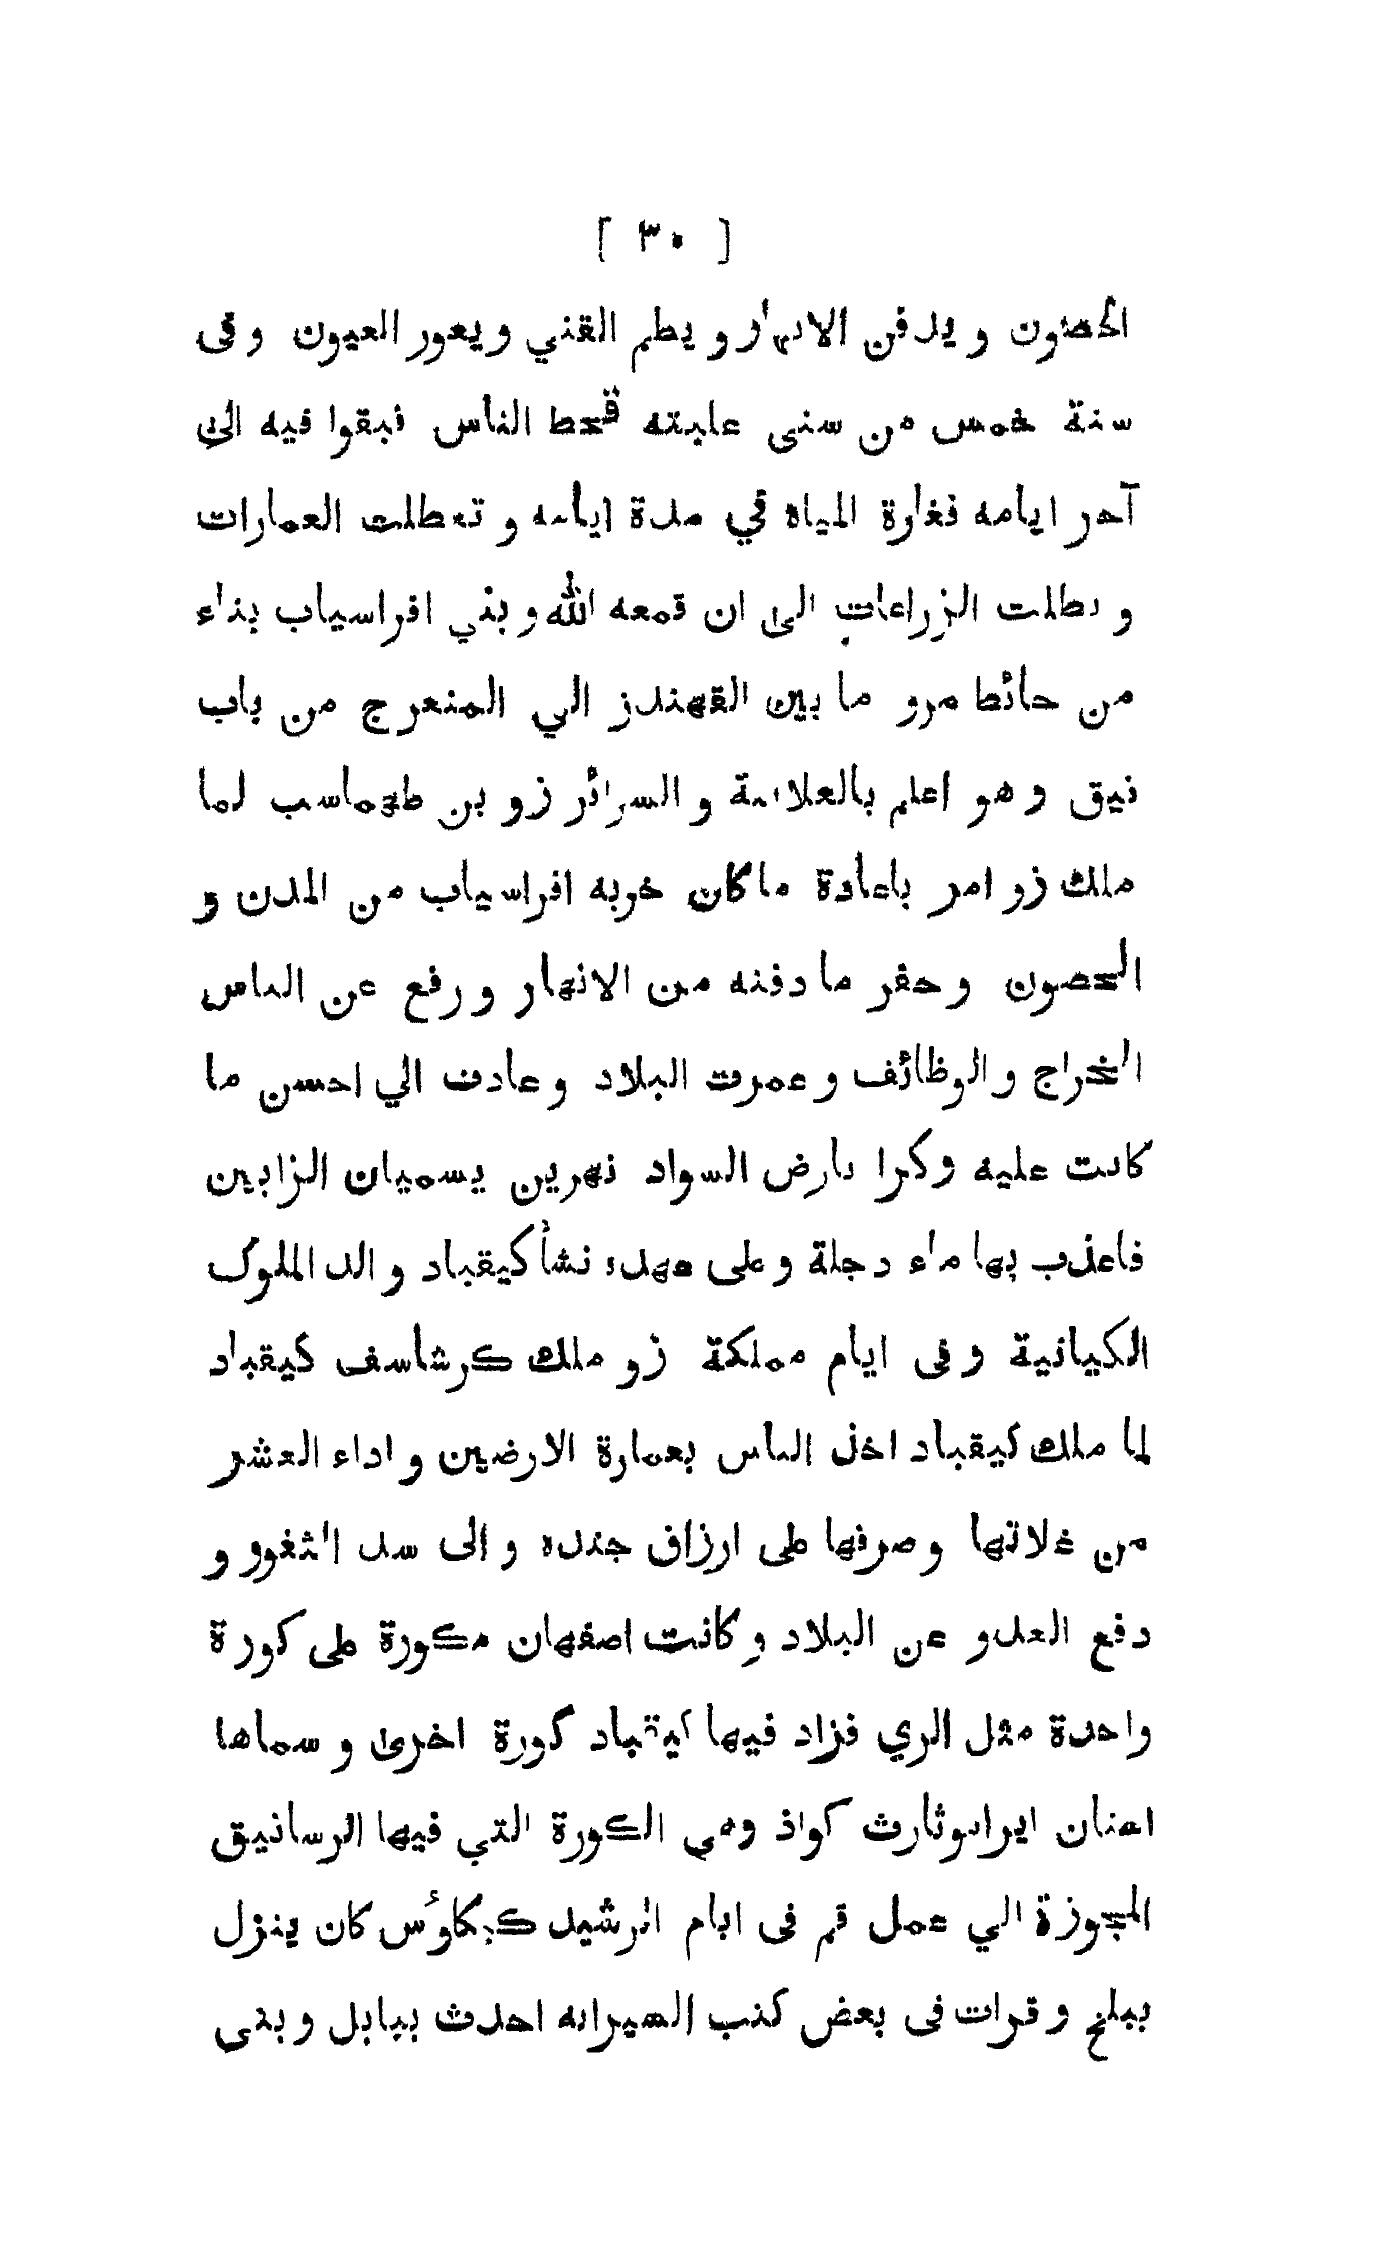 [ ٣٠ ]
الحصون و يدفن الانهار و يطم القني و يعور العيون وفى
سنة خمس من سنى علبته قحط الناس فبقوا فيه الى
آخر ايامه فغارة المياه في مدة ايامه و تعطلت العمارات
و بطلت الزراعات الى ان قمعه الله و بني افراسياب بناء
من حائط مرو ما بين القهندز الي المنعرج من باب
نيق و هو اعلم بالعلامة و السرائر زو بن طهماسب لما
ملك زو امر باعادة ما كان خربه افراسياب من المدن و
الحصون و حفر ما دفنه من الانهار و رفع عن الناس
الخراج و الوظائف و عمرت البلاد و عادت الي احسن ما
كانت عليه و كرا بارض السواد نهرين يسميان الزابين
فاعذب بها ماء دجلة و على عهده نشأ كيقباد والد الملوك
الكيانية و فى ايام مملكة زو ملك كرشاسف كيقباد
لما ملك كيقباد اخذ الناس بعمارة الارضين و اداء العشر
من غلاتها و صرفها على ارزاق جنده و الى سد الثغور و
دفع العدو عن البلاد و كانت اصفهان مكورة على كورة
واحدة مثل الري فزاد فيها كيقباد كورة اخرى و سماها
ايرانوثارث كواذ وهي الكورة التي فيها الرساتيق
المجوزة الي عمل قم فى ايام الرشيد كيكاؤس كان ينزل
ببلخ و قرات فى بعض كتب السيرانه احدث ببابل و بنى